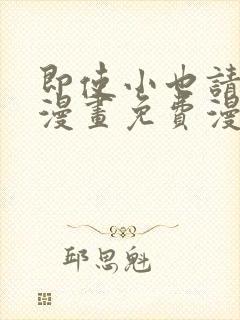 即使小也請
漫畫免費漫
邱思魁